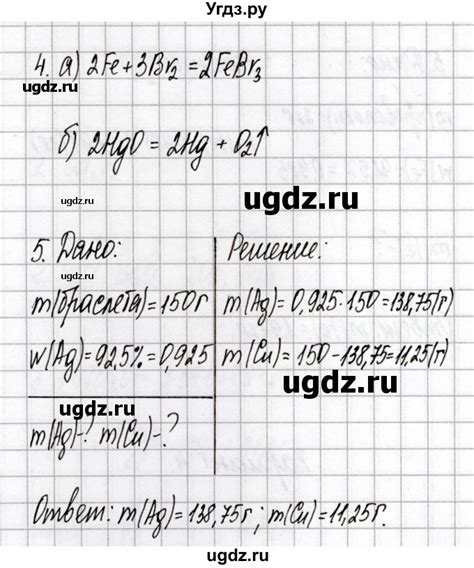 Угдз.ру
4. а) 2Fe+3Br₂ =2FeBr₃
ugdz.ru
ugdz.ru
б) 2HgO = 2Hg + O₂↑
ugdz.ru
ugdz.ru
5. Дано:
Решение:
ugdz.ru
m(браслета)=150г
m(Ag)= 0,925·150=138,75(г)
w(Ag)=92,5%=0,925
m(Cu)= 150-138,75=11,25(г)
ugdz.ru
ugdz.ru
m(Ag)-? m(Cu)-?
Ответ: m(Ag)=138,75г; m(Cu)=11,25г.
ugdz.ru
ugdz.ru